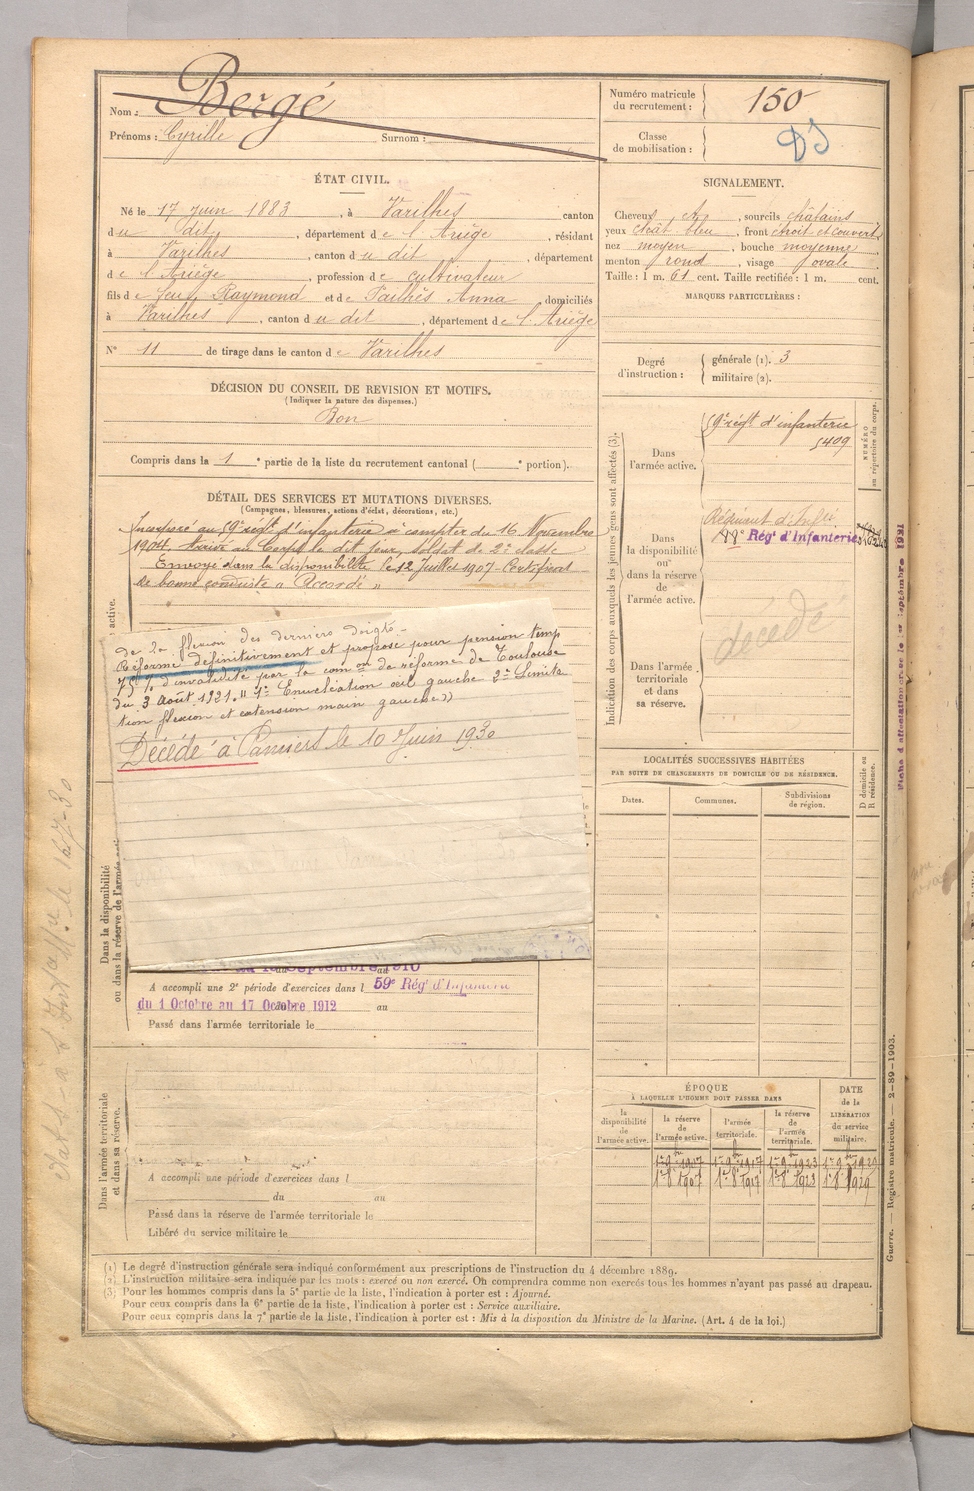 Nom : Bergé
Prénoms : Cyrille Surnom :
Numéro matricule du recrutement : 150
Classe de mobilisation : DS
ÉTAT CIVIL.
Né le 17 Juin 1883, à Varilhes canton
du dit, département de l'Ariège, résidant
à Varilhes, canton du dit, département
de l'Ariège, profession de cultivateur
fils de feu Raymond et de Pailhès Anna domiciliés
à Varilhes, canton du dit, département de l'Ariège
N° 11 de tirage dans le canton de Varilhes
DÉCISION DU CONSEIL DE REVISION ET MOTIFS.
(Indiquer la nature des dispenses.)
Bon
Compris dans la 1e partie de la liste du recrutement cantonal ( e portion).
DÉTAIL DES SERVICES ET MUTATIONS DIVERSES.
(Campagnes, blessures, actions d'éclat, décorations, etc.)
Incorporé au 59e régt d'infanterie à compter du 16 Novembre
1904. Arrivé au Corps le dit jour, soldat de 2e classe
Envoyé dans la disponibilité le 12 Juillet 1907 - Certificat
de bonne conduite « Accordé »
active.
de la flexion des derniers doigts -
Réformé définitivement et proposé pour pension temp
75 % d'invalidité par la comon de réforme de Toulouse
du 3 Août 1921. « 1° Enucléation œil gauche 2° Limita
tion flexion et extension main gauche »
Décédé à Camiers le 10 Juin 1930
Dans la disponibilité
ou dans la réserve de l'armée active.
Septembre 1910
A accompli une 2e période d'exercices dans l 59e Régt d'Infanterie
du 1 Octobre au 17 Octobre 1912 au
Passé dans l'armée territoriale le
Dans l'armée territoriale
et dans sa réserve.
A accompli une période d'exercices dans l
du au
Passé dans la réserve de l'armée territoriale le
Libéré du service militaire le
SIGNALEMENT.
Cheveux ch, sourcils châtains
yeux chât bleu, front étroit et couvert
nez moyen, bouche moyenne
menton rond, visage ovale
Taille : 1 m. 61 cent. Taille rectifiée : 1 m. cent.
MARQUES PARTICULIÈRES :
Degré d'instruction : générale (1). 3
militaire (2).
Indication des corps auxquels les jeunes gens sont affectés (3).
NUMÉRO au répertoire du corps.
Dans l'armée active.
59e régt d'infanterie
5409
Dans la disponibilité ou dans la réserve de l'armée active.
Régiment d'Infrie
Rég' d'Infanterie
décédé
Dans l'armée territoriale et dans sa réserve.
LOCALITÉS SUCCESSIVES HABITÉES
PAR SUITE DE CHANGEMENTS DE DOMICILE OU DE RÉSIDENCE.
Dates. Communes. Subdivisions de région. D domicile ou R résidence.
ÉPOQUE
À LAQUELLE L'HOMME DOIT PASSER DANS
la disponibilité de l'armée active. la réserve de l'armée active. l'armée territoriale. la réserve de l'armée territoriale.
DATE de la LIBÉRATION du service militaire.
1er 9bre 1907 1er 9bre 1917 1er 9bre 1923 1er 9bre 1929
1er 8bre 1907 1er 8bre 1917 1er 8bre 1923 1er 8bre 1929
Guerre. — Registre matricule. — 2-89-1903.
(1) Le degré d'instruction générale sera indiqué conformément aux prescriptions de l'instruction du 4 décembre 1889.
(2) L'instruction militaire sera indiquée par les mots : exercé ou non exercé. On comprendra comme non exercés tous les hommes n'ayant pas passé au drapeau.
(3) Pour les hommes compris dans la 5e partie de la liste, l'indication à porter est : Ajourné.
Pour ceux compris dans la 6e partie de la liste, l'indication à porter est : Service auxiliaire.
Pour ceux compris dans la 7e partie de la liste, l'indication à porter est : Mis à la disposition du Ministre de la Marine. (Art. 4 de la loi.)